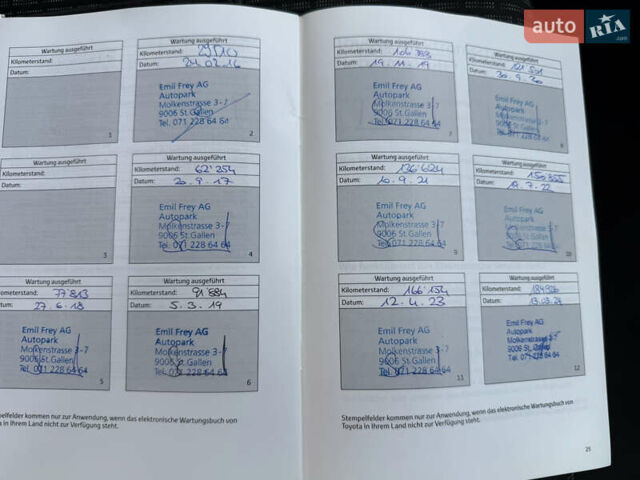 auto RIA .com
Wartung ausgeführt
Kilometerstand:
Datum:
1
Wartung ausgeführt
Kilometerstand:
Datum: 24.02.16
Emil Frey AG
Autopark
Molkenstrasse 3-7
9006 St.Gallen
Tel. 071 228 64 64
2
3
Wartung ausgeführt
Kilometerstand: 62'254
Datum: 20.9.17
Emil Frey AG
Autopark
Molkenstrasse 3-7
9006 St.Gallen
Tel. 071 228 64 64
4
Wartung ausgeführt
Kilometerstand: 77'813
Datum: 27.6.18
Emil Frey AG
Autopark
Molkenstrasse 3-7
9006 St.Gallen
Tel. 071 228 64 64
5
Wartung ausgeführt
Kilometerstand: 91'884
Datum: 5.3.19
Emil Frey AG
Autopark
Molkenstrasse 3-7
9006 St.Gallen
Tel. 071 228 64 64
6
Stempelfelder kommen nur zur Anwendung, wenn das elektronische Wartungsbuch von
Toyota in Ihrem Land nicht zur Verfügung steht.
Wartung ausgeführt
Kilometerstand:
Datum: 19.11.19
Emil Frey AG
Autopark
Molkenstrasse 3-7
9006 St.Gallen
Tel. 071 228 64 64
7
Wartung ausgeführt
Kilometerstand:
Datum: 30.9.20
Emil Frey AG
Autopark
Molkenstrasse 3-7
9006 St.Gallen
Tel. 071 228 64 64
8
Wartung ausgeführt
Kilometerstand: 136'624
Datum: 10.9.21
Emil Frey AG
Autopark
Molkenstrasse 3-7
9006 St.Gallen
Tel. 071 228 64 64
9
Wartung ausgeführt
Kilometerstand:
Datum: 19.7.22
Emil Frey AG
Autopark
Molkenstrasse 3-7
9006 St.Gallen
Tel. 071 228 64 64
10
Wartung ausgeführt
Kilometerstand: 166'154
Datum: 12.4.23
Emil Frey AG
Autopark
Molkenstrasse 3-7
9006 St.Gallen
Tel. 071 228 64 64
11
Wartung ausgeführt
Kilometerstand: 184926
Datum: 13.03.24
Emil Frey AG
Autopark
Molkenstrasse 3-7
9006 St.Gallen
Tel. 071 228 64 64
12
Stempelfelder kommen nur zur Anwendung, wenn das elektronische Wartungsbuch von
Toyota in Ihrem Land nicht zur Verfügung steht.
25